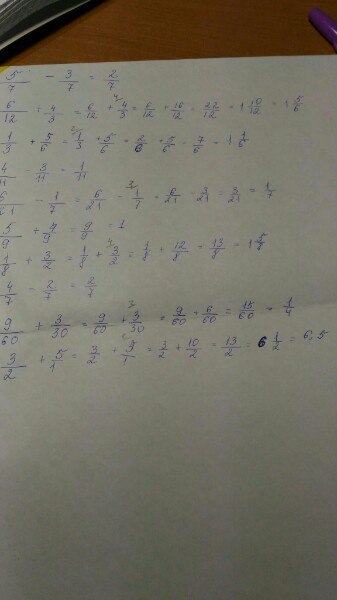 5/7 - 3/7 = 2/7
6/12 + 4/3 = 6/12 + 4/3 = 6/12 + 16/12 = 22/12 = 1 10/12 = 1 5/6
1/3 + 5/6 = 1/3 + 5/6 = 2/6 + 5/6 = 7/6 = 1 1/6
4/11 - 3/11 = 1/11
6/21 - 1/7 = 6/21 - 1/7 = 6/21 - 3/21 = 3/21 = 1/7
5/9 + 4/9 = 9/9 = 1
1/8 + 3/2 = 1/8 + 3/2 = 1/8 + 12/8 = 13/8 = 1 5/8
4/7 - 2/7 = 2/7
9/60 + 3/30 = 9/60 + 3/30 = 9/60 + 6/60 = 15/60 = 1/4
3/2 + 5/1 = 3/2 + 5/1 = 3/2 + 10/2 = 13/2 = 6 1/2 = 6,5